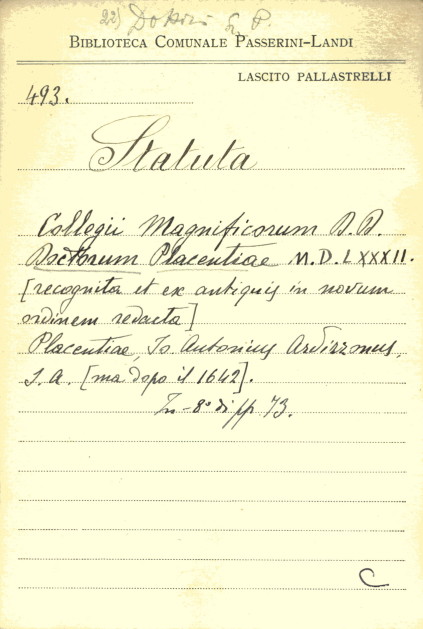 22) Dottori L. P.
BIBLIOTECA COMUNALE PASSERINI-LANDI
LASCITO PALLASTRELLI
493.
Statuta
Collegii Magnificorum D. D.
Doctorum Placentiae M.D.LXXXII.
[recognita et ex antiquis in novum
ordinem redacta]
Placentiae, Io. Antonius Ardizzonus,
S. A. [ma dopo il 1642].
In-8º di pp 73.
C